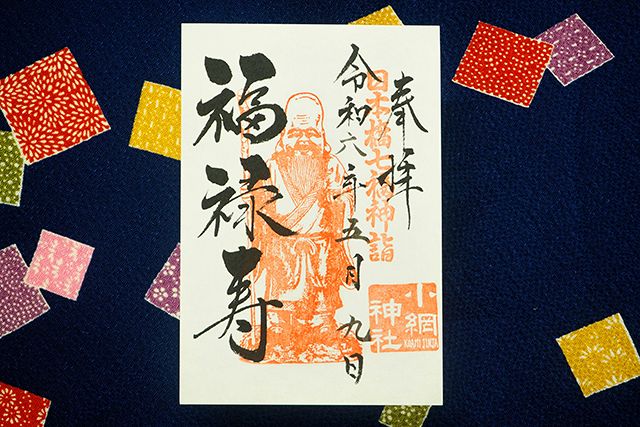 奉拝
日本橋七福神詣
令和六年五月九日
福禄寿
小網
神社
KOAMI JINJA